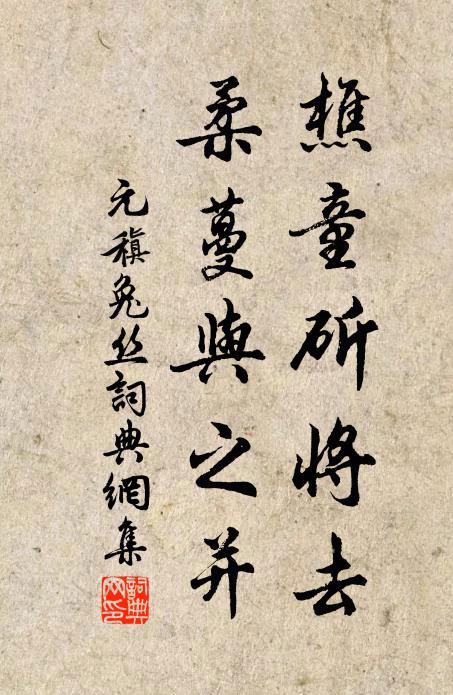 樵童斫將去
柔蔓與之并
元稹兔丝詞典網集
詞典网印